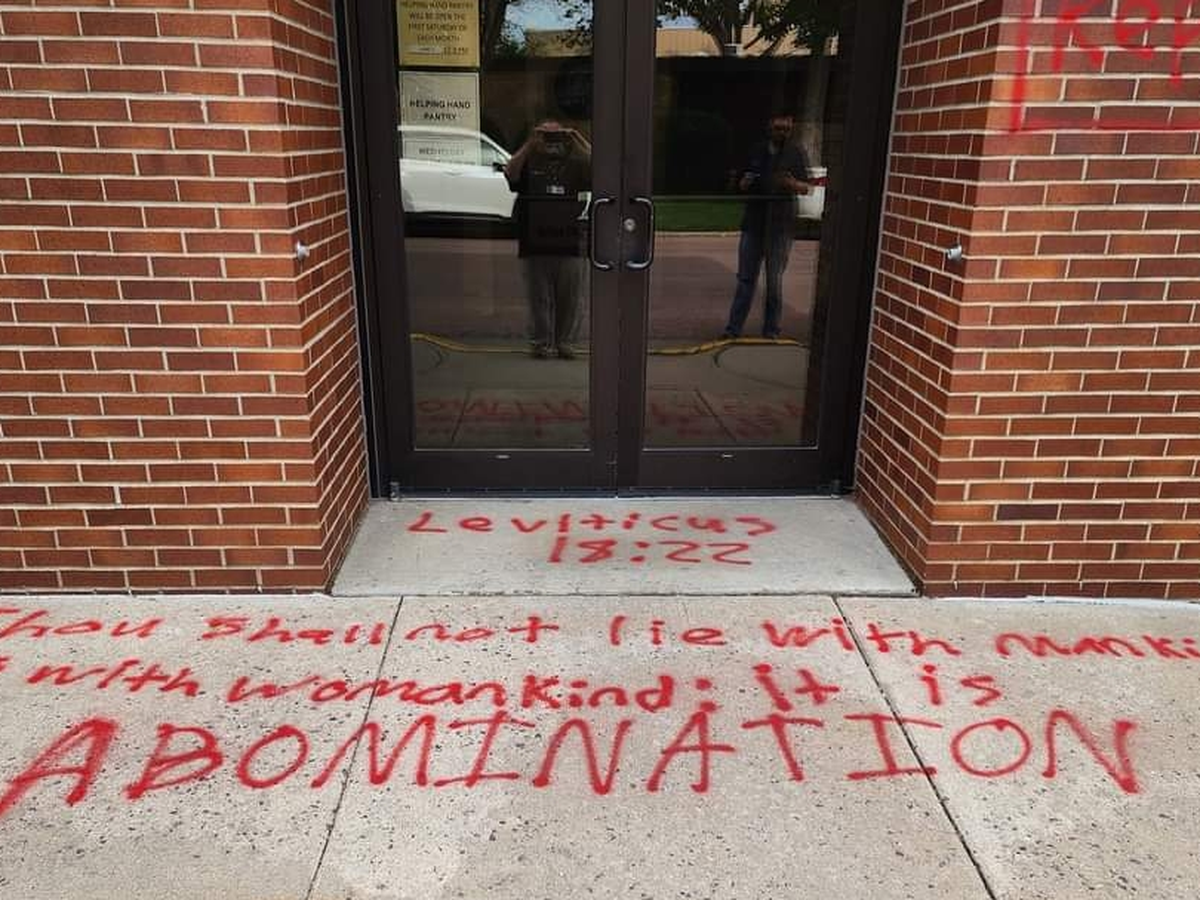 HELPING HAND PANTRY
WILL BE OPEN THE
FIRST SATURDAY OF
EACH MONTH
HELPING HAND
PANTRY
WEDNESDAY
Leviticus
18:22
Thou shall not lie with manki
with womankind: it is
ABOMINATION